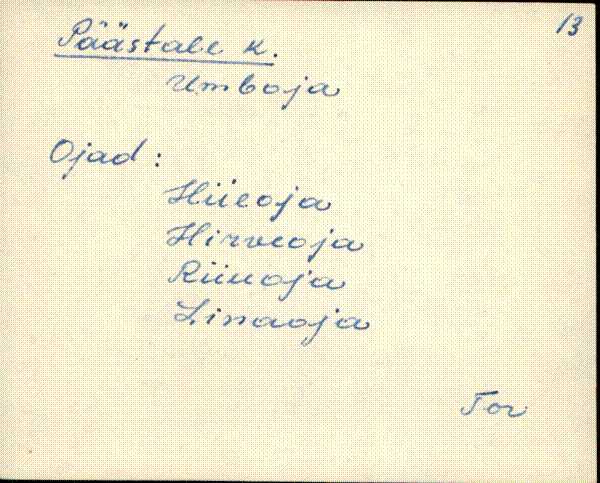 13
Päästale k.
Umboja
Ojad :
Hiieoja
Hirveoja
Linaoja
Tor